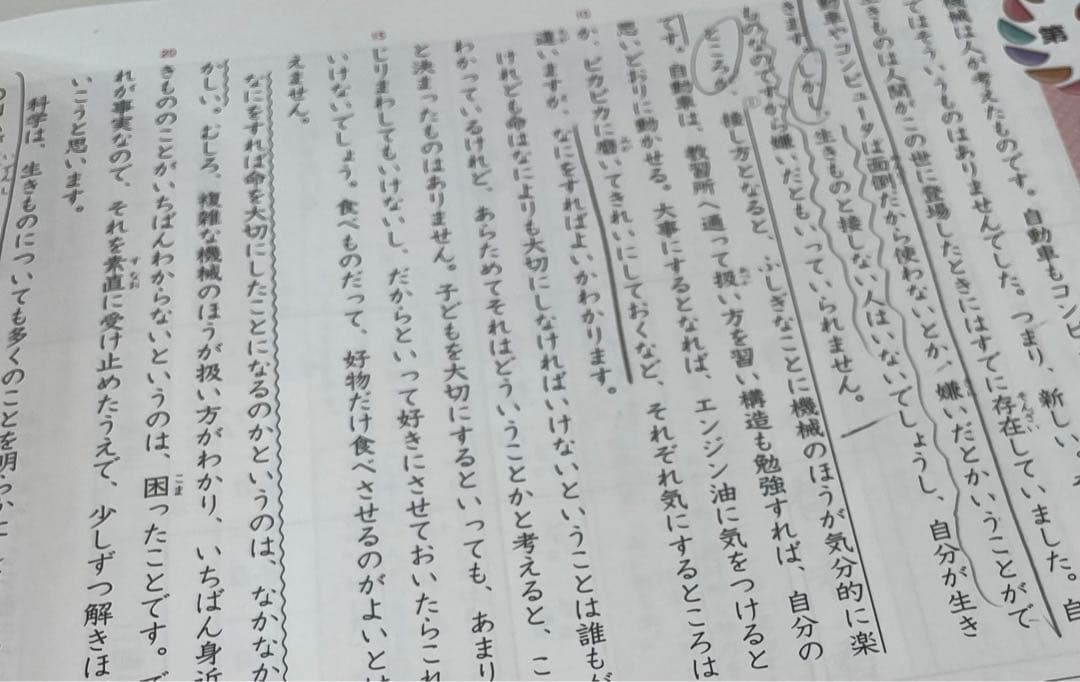 第
機械は人が考えたものです。自動車もコンピ
ではそういうものはありませんでした。つまり、新しい
生きものは人間がこの世に登場したときにはすでに存在していました。自
動車やコンピュータは面倒だから使わないとか、嫌いだとかいうことがで
きます。しかし、生きものと接しない人はいないでしょうし、自分が生き
ものなのですから嫌いだともいっていられません。
ところが、接し方となると、ふしぎなことに機械のほうが気分的に楽
です。自動車は、教習所へ通って扱い方を習い構造も勉強すれば、自分の
思いどおりに動かせる。大事にするとなれば、エンジン油に気をつけると
か、ピカピカに磨いてきれいにしておくなど、それぞれ気にするところは
違いますが、なにをすればよいかわかります。
けれども命はなによりも大切にしなければいけないということは誰もが
わかっているけれど、あらためてそれはどういうことかと考えると、こ
と決まったものはありません。子どもを大切にするといっても、あまり
じりまわしてもいけないし、だからといって好きにさせておいたらこれ
いけないでしょう。食べものだって、好物だけ食べさせるのがよいとは
えません。
なにをすれば命を大切にしたことになるのかというのは、なかなか
かしい。むしろ、複雑な機械のほうが扱い方がわかり、いちばん身近
きもののことがいちばんわからないというのは、困ったことです。で
れが事実なので、それを素直に受け止めたうえで、少しずつ解きほ
いこうと思います。
科学は、生きものについても多くのことを明らかに